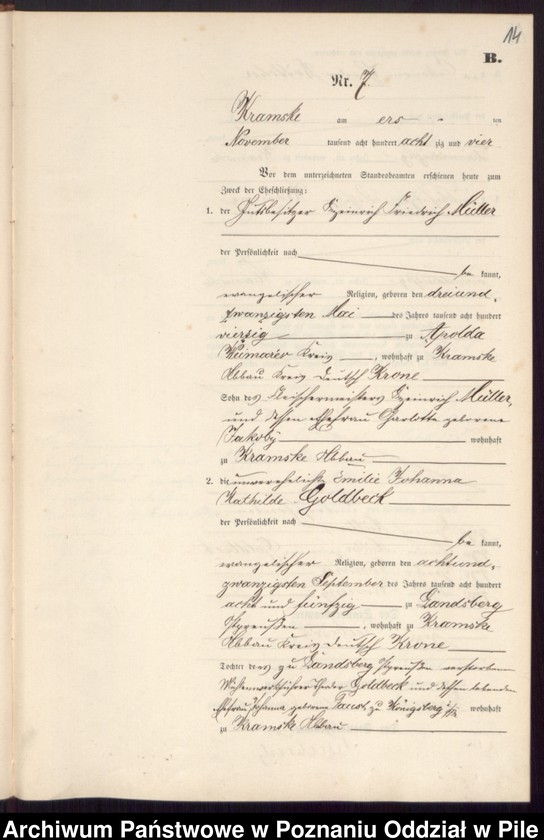 14
B.
Nr. 7.
Kramske am ersten
November tausend acht hundert achtzig und vier
Vor dem unterzeichneten Standesbeamten erschienen heute zum
Zweck der Eheschließung:
1. der Gutsbesitzer Heinrich Friedrich Müller
der Persönlichkeit nach
bekannt,
evangelischer Religion, geboren den dreiund-
zwanzigsten Mai des Jahres tausend acht hundert
vierzig zu Apolda
Weimarer Kreis, wohnhaft zu Kramske
Abbau Kreis Deutsch Krone
Sohn des Fleischermeisters Heinrich Müller,
und dessen Ehefrau Charlotte geborene
Jakoby wohnhaft
zu Kramske Abbau
2. die unverehelichte Emilie Johanna
Mathilde Goldbeck
der Persönlichkeit nach
bekannt,
evangelischer Religion, geboren den achtund-
zwanzigsten September des Jahres tausend acht hundert
acht und fünfzig zu Landsberg
Ostpreußen, wohnhaft zu Kramske
Abbau Kreis Deutsch Krone
Tochter des zu Landsberg Ostpreußen verstorbenen
Goldbeck und dessen lebenden
Ehefrau Johanna geborene zu Königsberg wohnhaft
zu Kramske Abbau
Archiwum Państwowe w Poznaniu Oddział w Pile